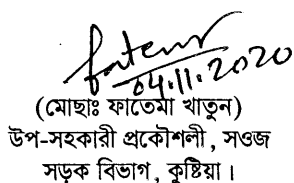 04.11.2020
(মোছাঃ ফাতেমা খাতুন)
উপ-সহকারী প্রকৌশলী, সওজ
সড়ক বিভাগ, কুষ্টিয়া।